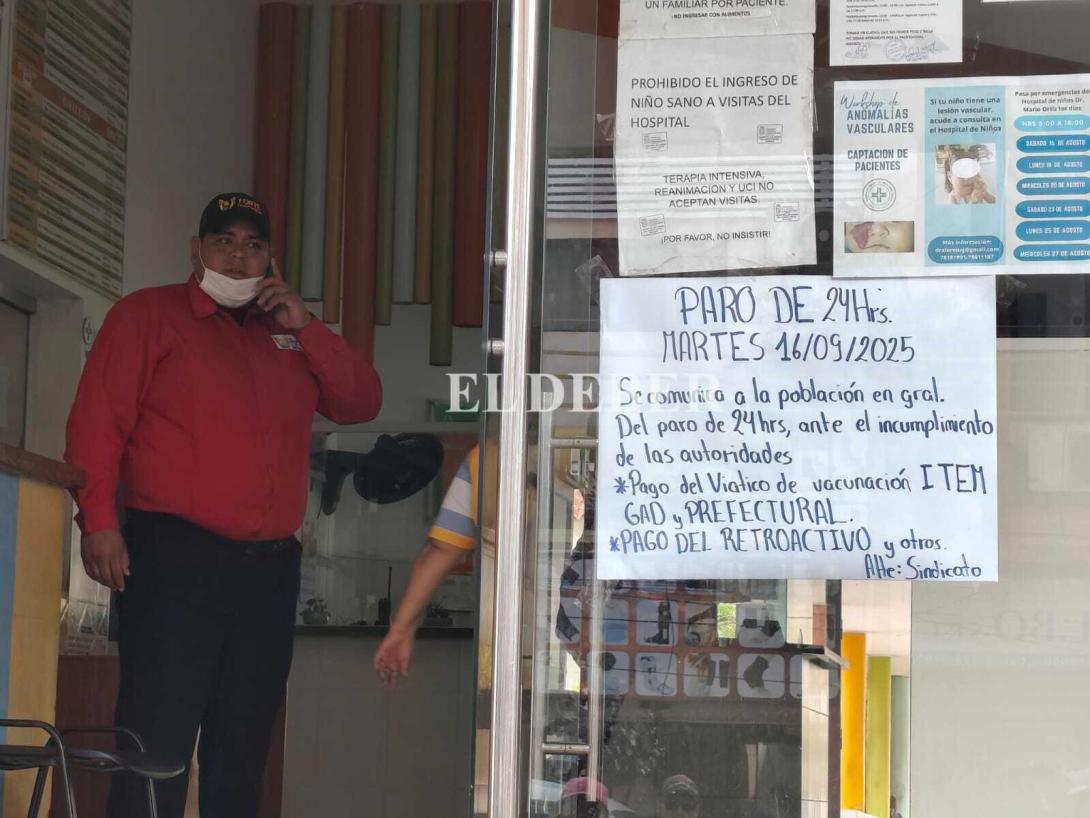 UN FAMILIAR POR PACIENTE.
¡NO INGRESAR CON ALIMENTOS.
PROHIBIDO EL INGRESO DE
NIÑO SANO A VISITAS DEL
HOSPITAL
TERAPIA INTENSIVA,
REANIMACION Y UCI NO
ACEPTAN VISITAS.
¡POR FAVOR, NO INSISTIR!
Workshop de
ANOMALÍAS
VASCULARES
CAPTACION DE
PACIENTES
Si tu niño tiene una
lesión vascular,
acude a consulta en
el Hospital de Niños
Más información:
Pasa por emergencias del
Hospital de niños Dr.
Mario Ortiz los días
HRS 8:00 A 16:00
SABADO 16 DE AGOSTO
LUNES 18 DE AGOSTO
MIERCOLES 20 DE AGOSTO
SABADO 23 DE AGOSTO
LUNES 25 DE AGOSTO
MIERCOLES 27 DE AGOSTO
PARO DE 24Hrs.
MARTES 16/09/2025
Se comunica a la población en gral.
Del paro de 24hrs, ante el incumplimiento
de las autoridades
*Pago del Viatico de vacunación ITEM
GAD y PREFECTURAL.
*PAGO DEL RETROACTIVO y otros.
Atte: Sindicato
EL DEBER